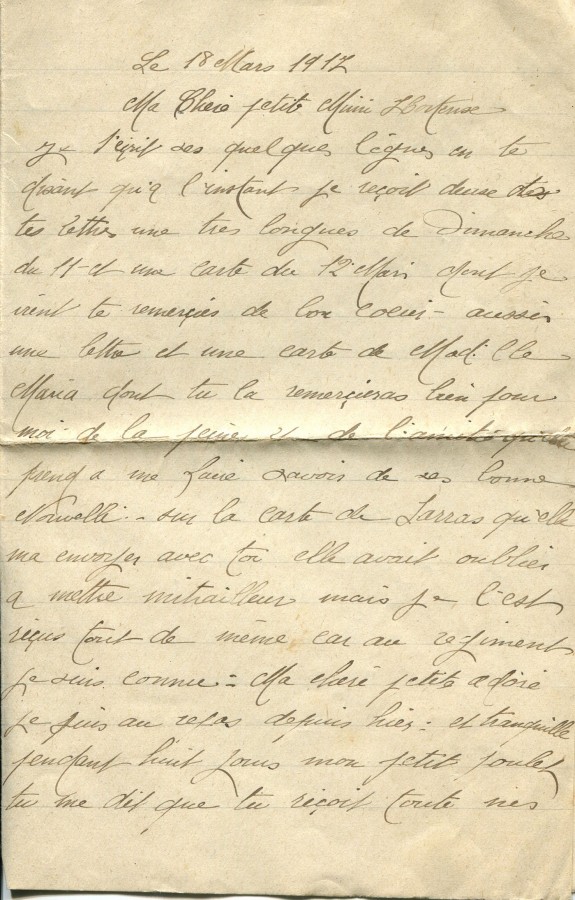 Le 18 Mars 1917
Ma Chere petite Mimi Hortense
Je t'ecrit ses quelques lignes en te
disant qu'a l'instant je reçoit deuse des
tes lettres une tres longues de Dimanche
du 11 et une carte du 12 Mars dont je
vient te remerçies de bon coeur - aussi
une lettre et une carte de Mad. lle
Maria dont tu la remerçieras bien pour
moi de la peine et de l'amitié qu'elle
preng a me faire savoir de ses bonne
Nouvelle - sur la carte de Sarras qu'elle
ma envoyer avec toi elle avait oublier
a mettre mitrailleur mais je l'est
reçus tout de même car au regiment
je suis connu = Ma cheré petite adoré
je suis au repos depuis hier = et tranquille
pendant huit jours mon petit poulet
tu me dit que tu reçoit toute mes